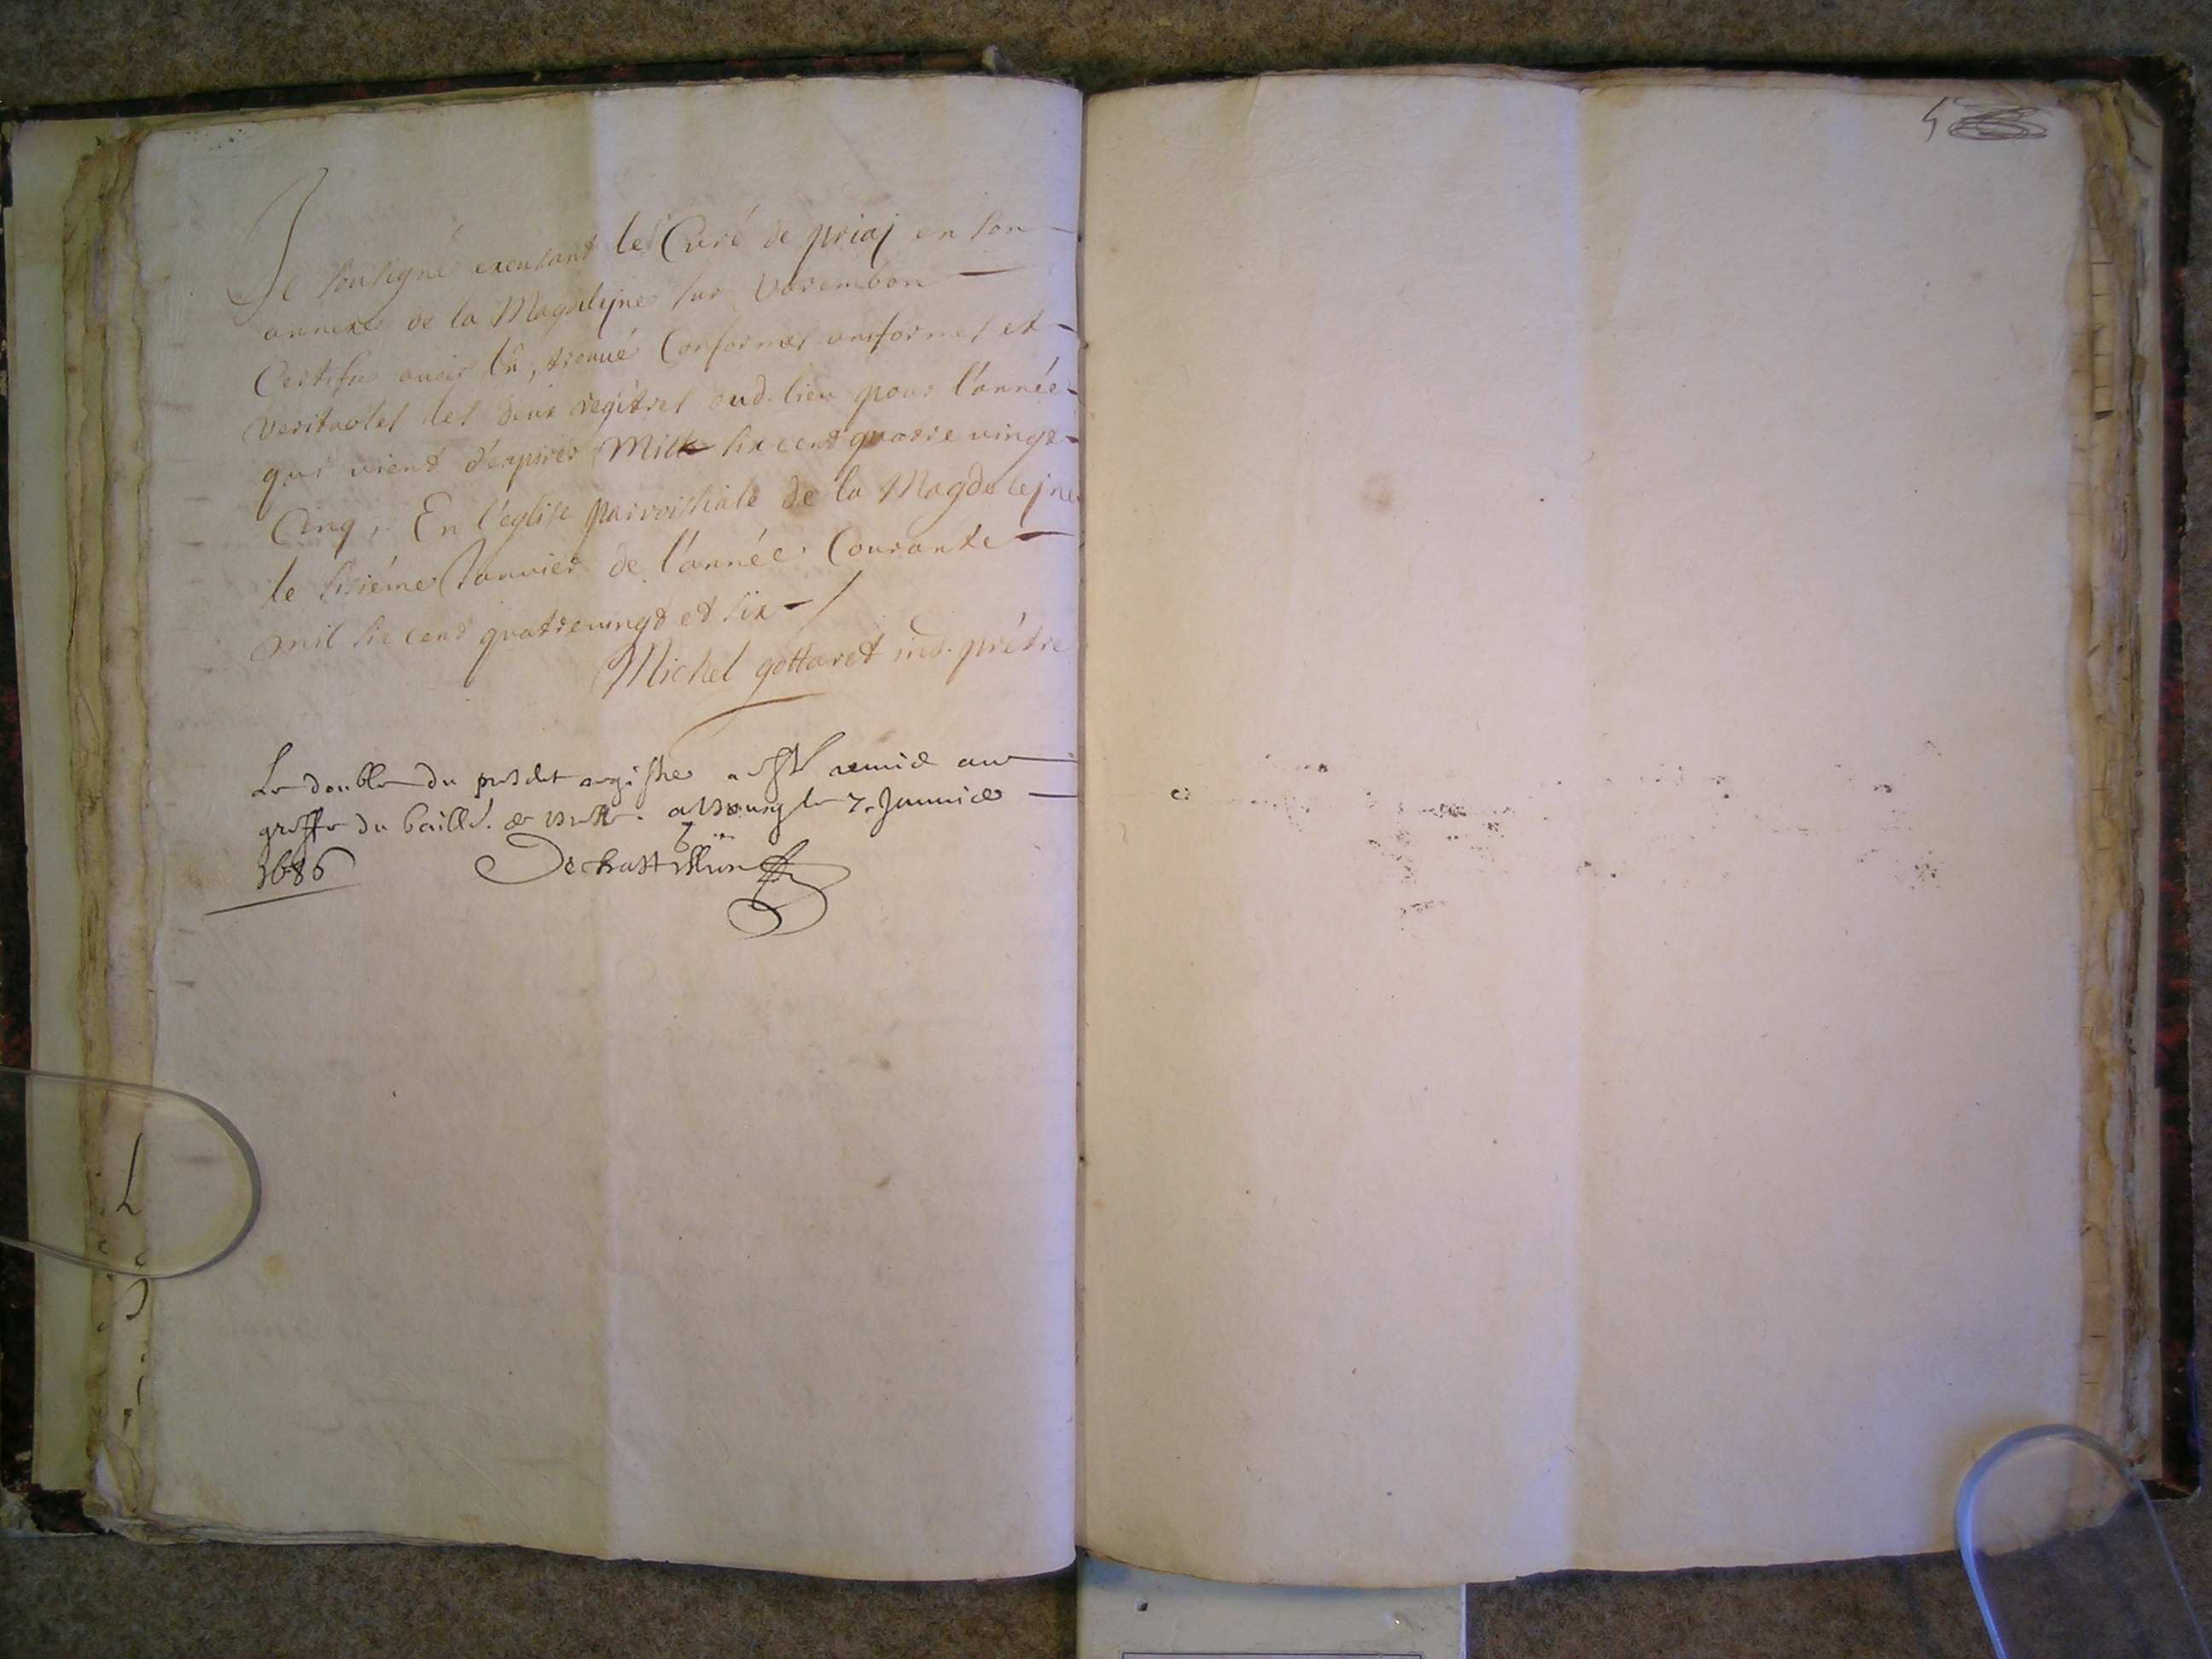 Je sousigné excusant le Curé de priaj en son
annexe de la Magdlejne sur Varembon
Certifie avoir lû, trouué Conformes uniformes et
veritables les deux regîtres dud. lieu pour l'année
qui vient d'expirer Mille six cent quatre vingt
Cinq, En l'eglise parroissiale de la Magdelejne
le sisiéme Januier de l'année Courante
mil six cent quatrevingt et six
Michel gottaret ind. prêtre
Le double du present registre a esté remis au
greffe du baill. de a Bourg le 7e Januier
1686
5